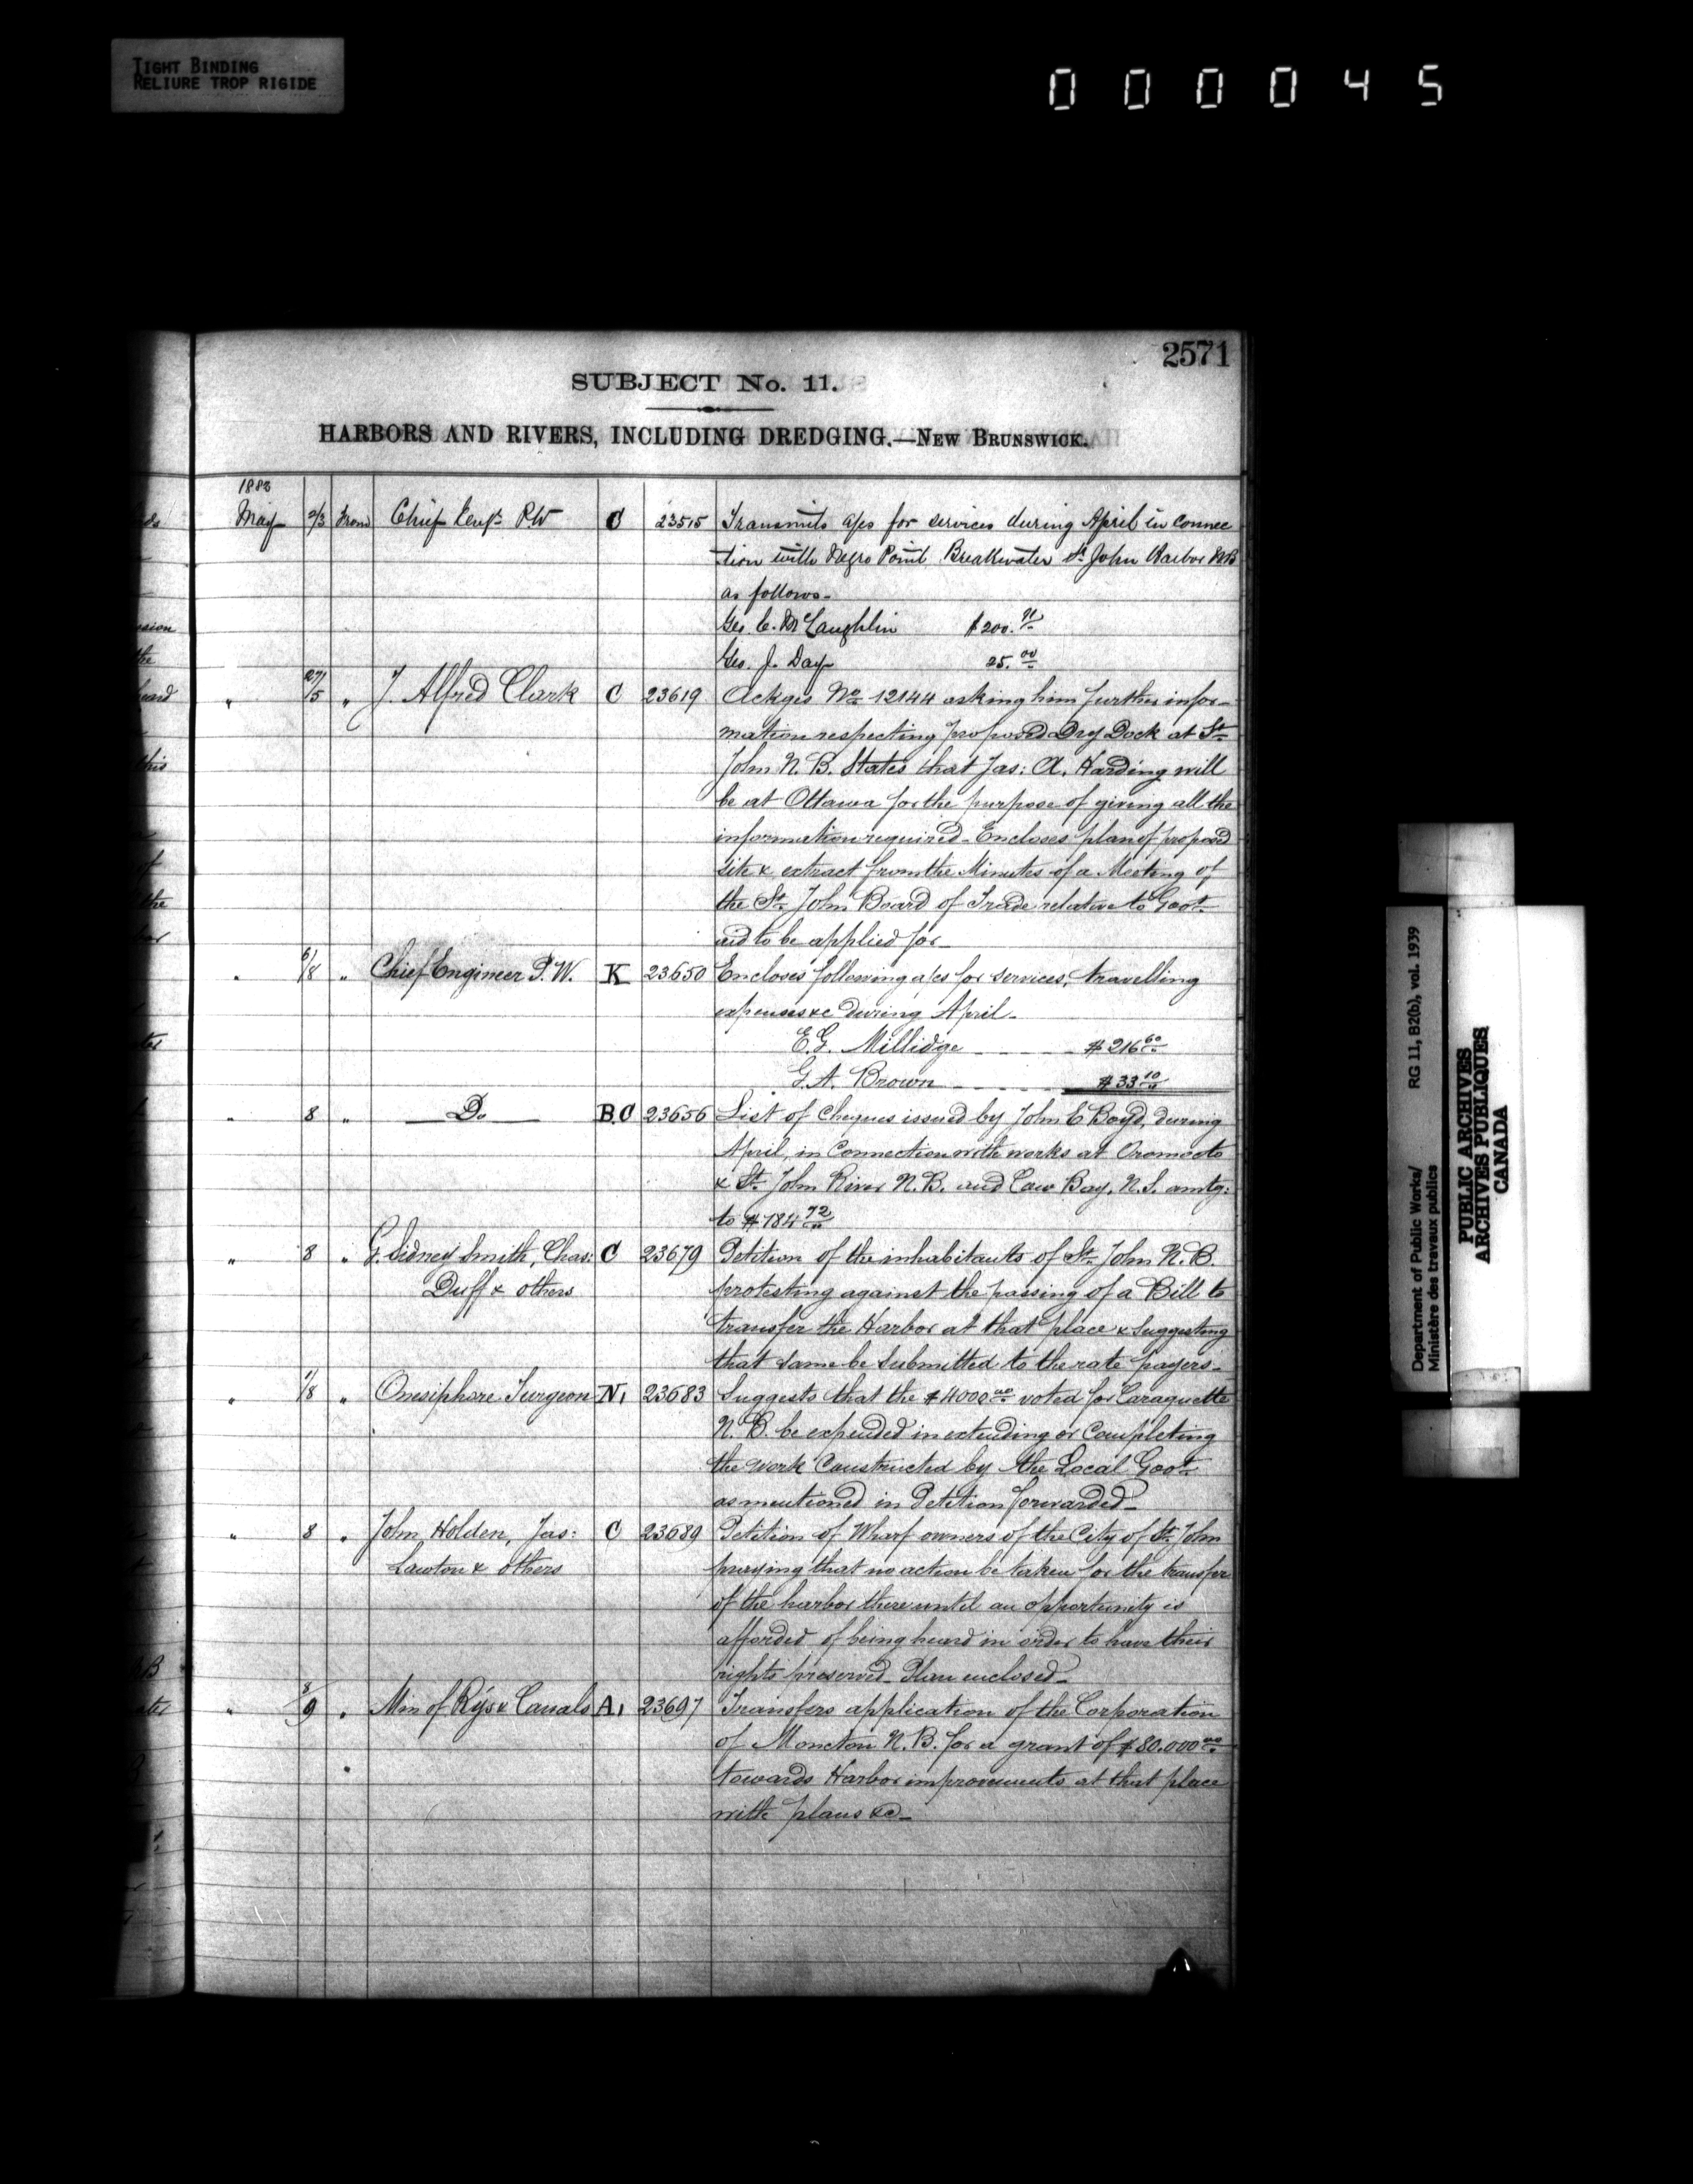 TIGHT BINDING
RELIURE TROP RIGIDE
000045
2571
SUBJECT No. 11.
HARBORS AND RIVERS, INCLUDING DREDGING.—NEW BRUNSWICK.
1883
May 2/3 From Chief Eng. P.W C 23515 Transmits a/cs for services during April in connec
tion with Negro Point Breakwater St John Harbor NB
as follows -
Geo. C. McLaughlin $200.
Geo. J. Day 25.00
" 27/5 " J. Alfred Clark C 23619 Ackges No 12144 asking him further infor-
mation respecting proposed Dry Dock at St
John N.B. States that Jas: A. Harding will
be at Ottawa for the purpose of giving all the
information required - Encloses plan of proposed
site & extract from the Minutes of a Meeting of
the St John Board of Trade relative to Govt
aid to be applied for -
" 8 " Chief Engineer P.W. K 23650 Encloses following a/cs for services, travelling
expenses &c during April -
E.G. Millidge $216 60
G.A. Brown $33 10
" 8 " Do B.C 23656 List of Cheques issued by John E Boyd, during
April, in Connection with works at Oromocto
& St John River N.B. and Cow Bay, N.S. amtg:
to $184 72
" 8 " G. Sidney Smith, Chas: C 23679 Petition of the inhabitants of St John N.B.
Duff & others protesting against the passing of a Bill to
transfer the Harbor at that place & suggesting
that same be submitted to the rate payers -
" 1/8 " Onesiphore Turgeon N1 23683 Suggests that the $4000 00 voted for Caraquette
N.B. be expended in extending or Completing
the work Constructed by the Local Govt
as mentioned in Petition forwarded -
" 8 " John Holden, Jas: C 23689 Petition of Wharf owners of the City of St John
Lawton & others praying that no action be taken for the transfer
of the harbor there until an opportunity is
afforded of being heard in order to have their
rights preserved - Plan enclosed -
" 8/9 " Min of Rys & Canals A1 23697 Transfers application of the Corporation
of Moncton N.B. for a grant of $80.000 00
towards Harbor improvements at that place
with plans &c -
Department of Public Works/ RG 11, B2(b), vol. 1939
Ministère des travaux publics
PUBLIC ARCHIVES
ARCHIVES PUBLIQUES
CANADA